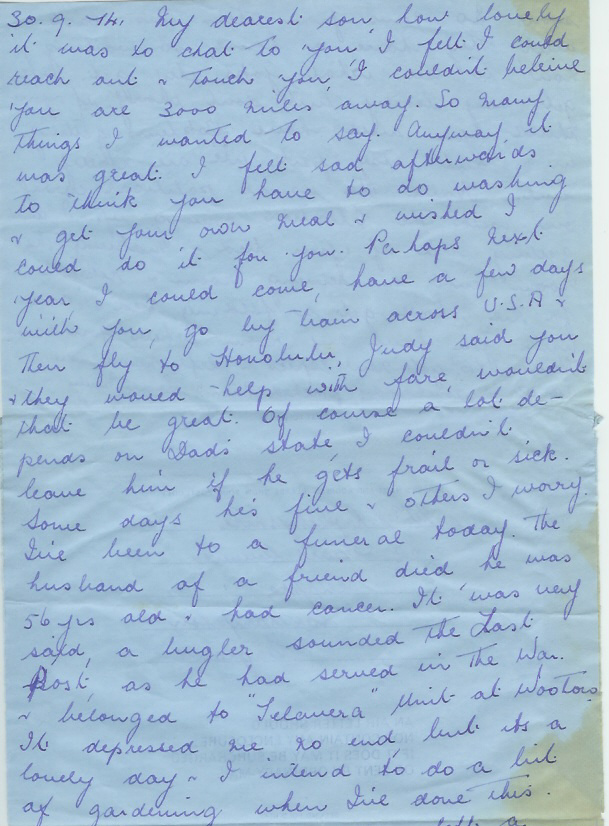 30. 9. 74. My dearest son how lovely
it was to chat to you I felt I could
reach out & touch you, I couldn't beleive
you are 3000 miles away. So many
things I wanted to say. Anyway it
was great. I felt sad afterwards
to think you have to do washing
& get your own meal & wished I
could do it for you. Perhaps next
year, I could come, have a few days
with you, go by train across U.S.A &
then fly to Honolulu, Judy said you
& they would help with fare, wouldn't
that be great. Of course a lot de-
pends on Dads state I couldn't
leave him if he gets frail or sick.
Some days he's fine & others I worry.
I've been to a funeral today. The
husband of a friend died he was
56 yrs old & had cancer. It was very
said, a bugler sounded the Last
Post, as he had served in the War.
& belonged to "Telavera" Unit at Wootons
It depressed me no end, but its a
lovely day & I intend to do a bit
of gardening when I've done this.